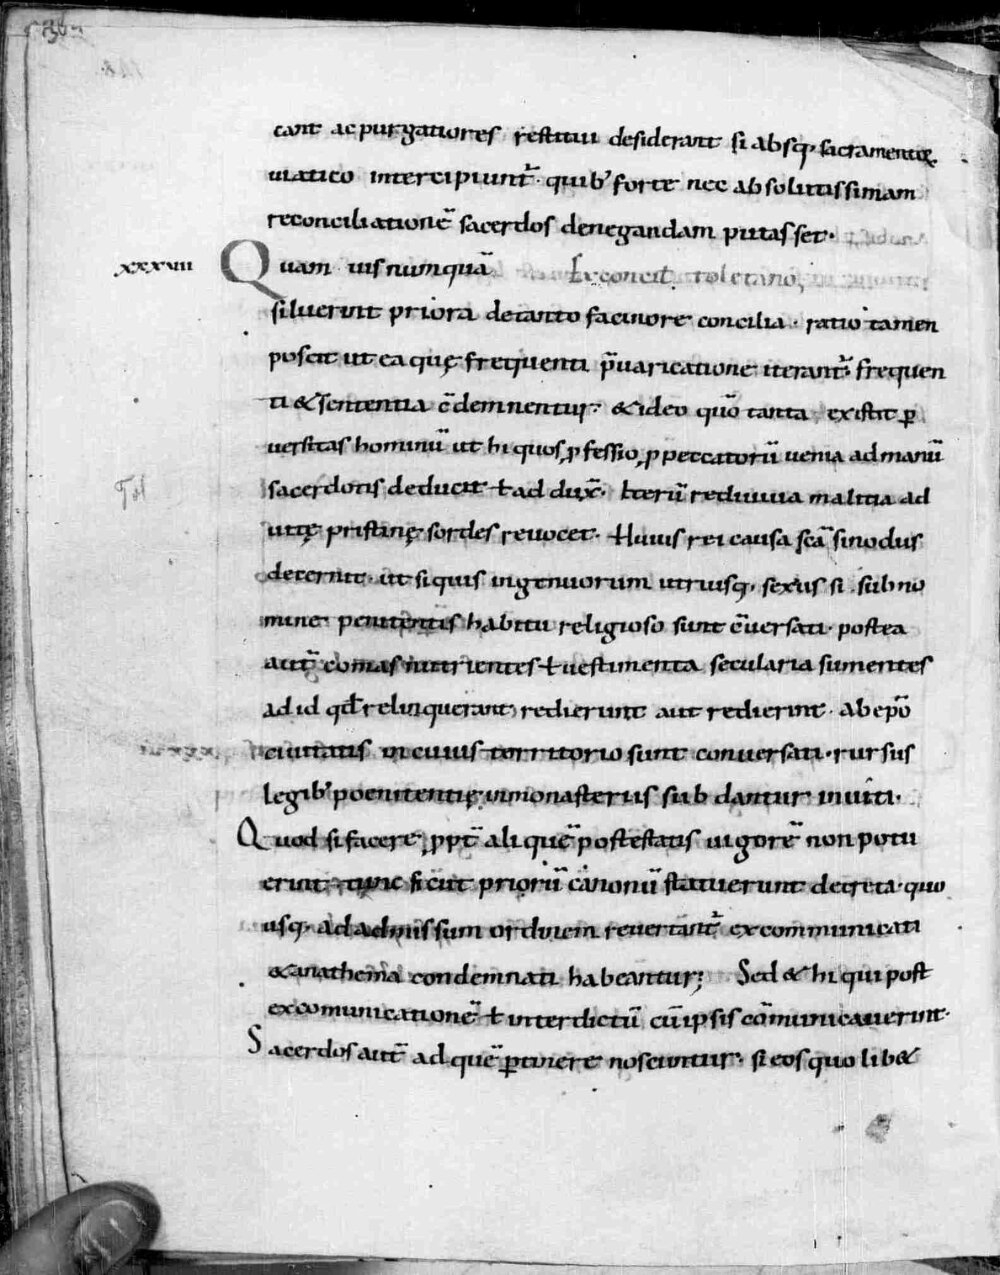 cant ac purgatiores restitui desiderant si absq; sacramentoꝝ
uiatico intercipiunt̄· quib' forte nec absolutissimam
reconciliationē sacerdos denegandam putasset·
xxxvii Quam uis numquā Ex concil toletano;
siluerint priora de tanto facinore concilia· ratio tamen
poscit ut ea quę frequenti p̄uaricatione iterant̄· frequen
ti & sententia c̄demnentur· & ideo quō tanta existit ꝑ
uersitas hominū ut hi quos ꝓfessio ꝓ peccatorū uenia ad manū
sacerdotis deducit ł adduẍ· Iterū rediuiua malitia ad
uitę pristinę sordes reuocet· Huius rei causa scā sinodus
decernit· ut si quis ingenuorum utriusq; sexus si sub no
mine penitentis habitu religioso sunt c̄uersati· postea
aut̄ comas nutrientes ł uestimenta secularia sumentes
ad id qđ relinquerant redierunt aut redierint· Ab epō
ciuitatis in cuius territorio sunt conuersati· rursus
legib' poenitentię in monasteriis sub dantur inuiti·
Quod si facere ꝓpt̄ aliquē postestatis uigorē non potu
erint· tunc sicut priorū canonū statuerunt decreta· quo
usq; ad admissum ordinem reuertant̄ excommunicati
& anathema condemnati habeantur; Sed & hi qui post
excomunicationē ł interdictū cū ipsis cōmunicauerint·
Sacerdos aut̄ ad quē ꝑtinere noscuntur· si eos quo lib&